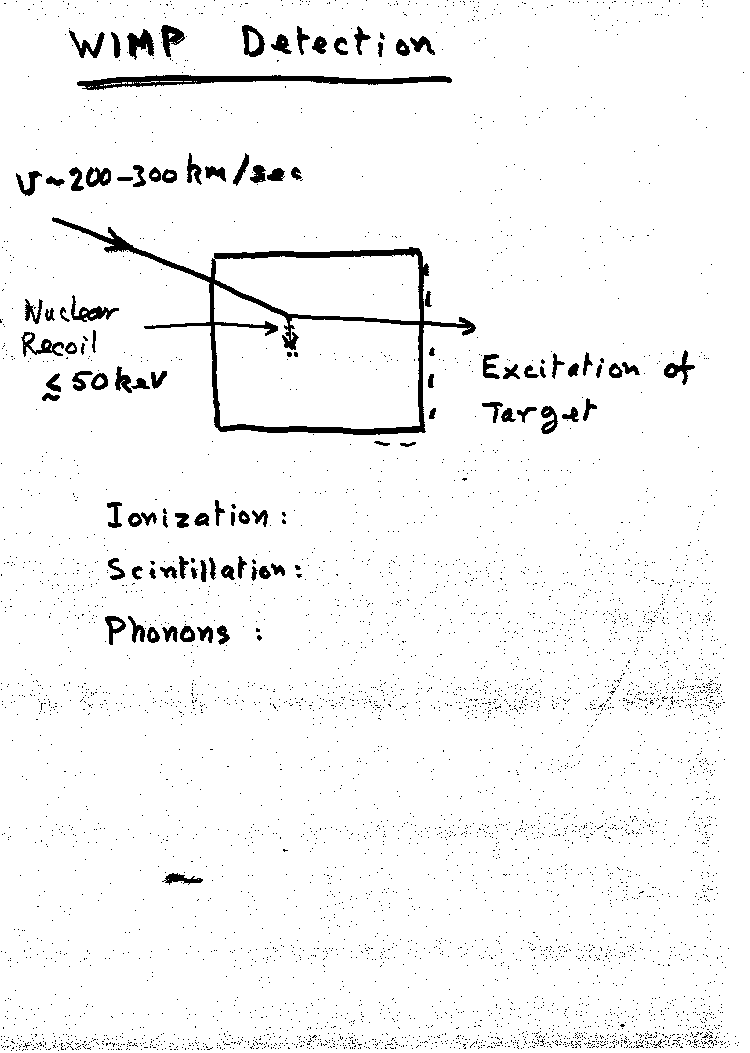 WIMP Detection
v ~ 200-300 km/sec
Nuclear
Recoil
≲ 50 keV
Excitation of
Target
Ionization:
Scintillation:
Phonons: